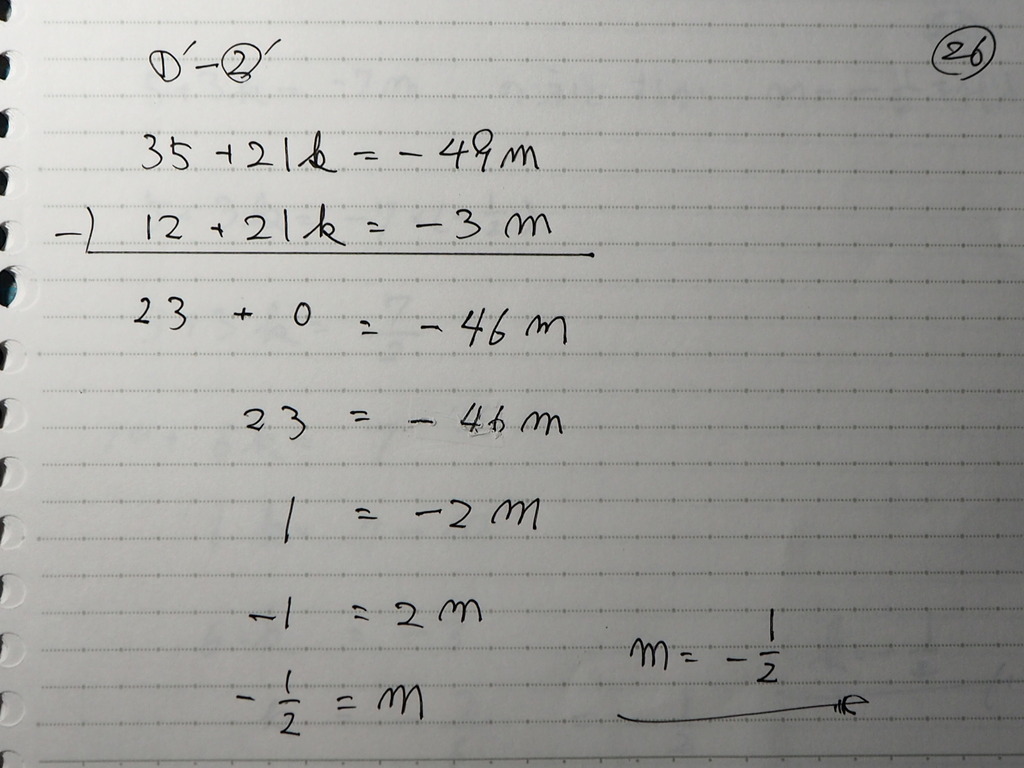 ①′ - ②′
㉖
35 + 21k = - 49m
-) 12 + 21k = - 3 m
23 + 0 = - 46 m
23 = - 46 m
1 = - 2 m
-1 = 2 m
- 1/2 = m
m = - 1/2